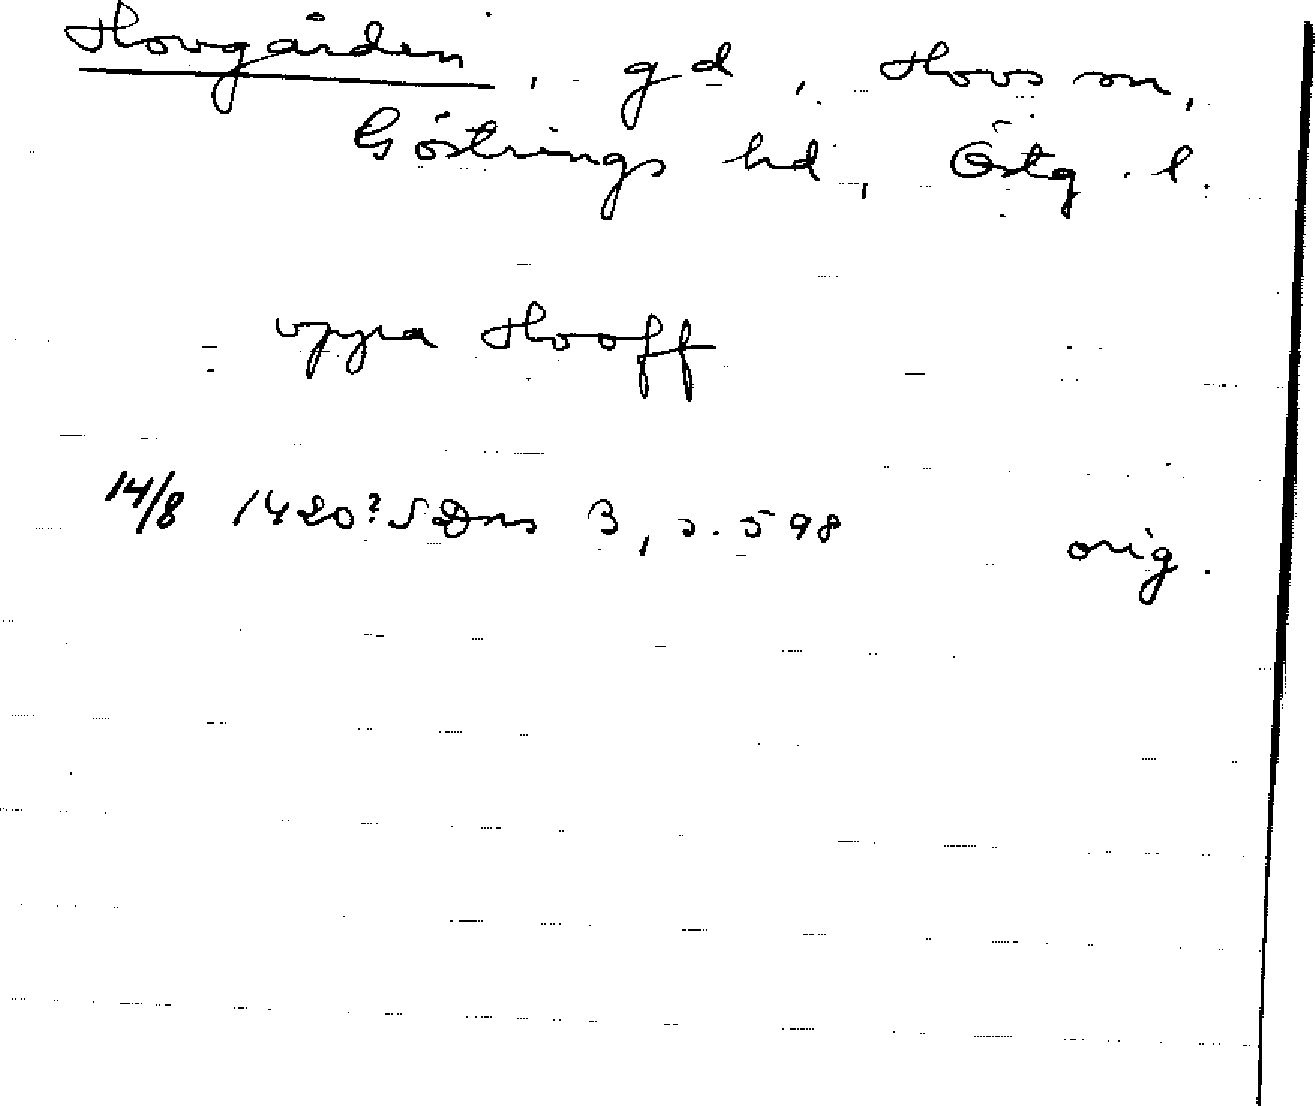 Hovgården, gd, Hovs sn,
Göstrings hd, Östg. l.
vppa Hooff
14/8 1420? SDns 3, s. 598 orig.